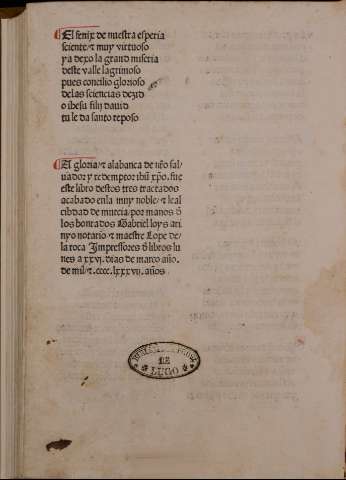 ¶El fenix de nuestra esperia
sciente ⁊ muy virtuoso
ya dexo la grand miseria
deste valle lagrimoso
pues concilio glorioso
de las sciencias dezid
o ihesu filij dauid
tu le da santo reposo
¶A gloria/⁊ alabança de nr̃o sal/
uador y redemptor ihũ xp̃o. fue
este libro destos tres tractados
acabado enla muy noble/⁊ leal
cibdad de murcia/por manos ð
los honrados Gabriel loys ari
nyo notario/⁊ maestre Lope de/
la roca Impressores ð libros lu
nes a xxvj. dias de março año.
de mil/⁊. cccc. lxxxvij. años
DE
LUGO